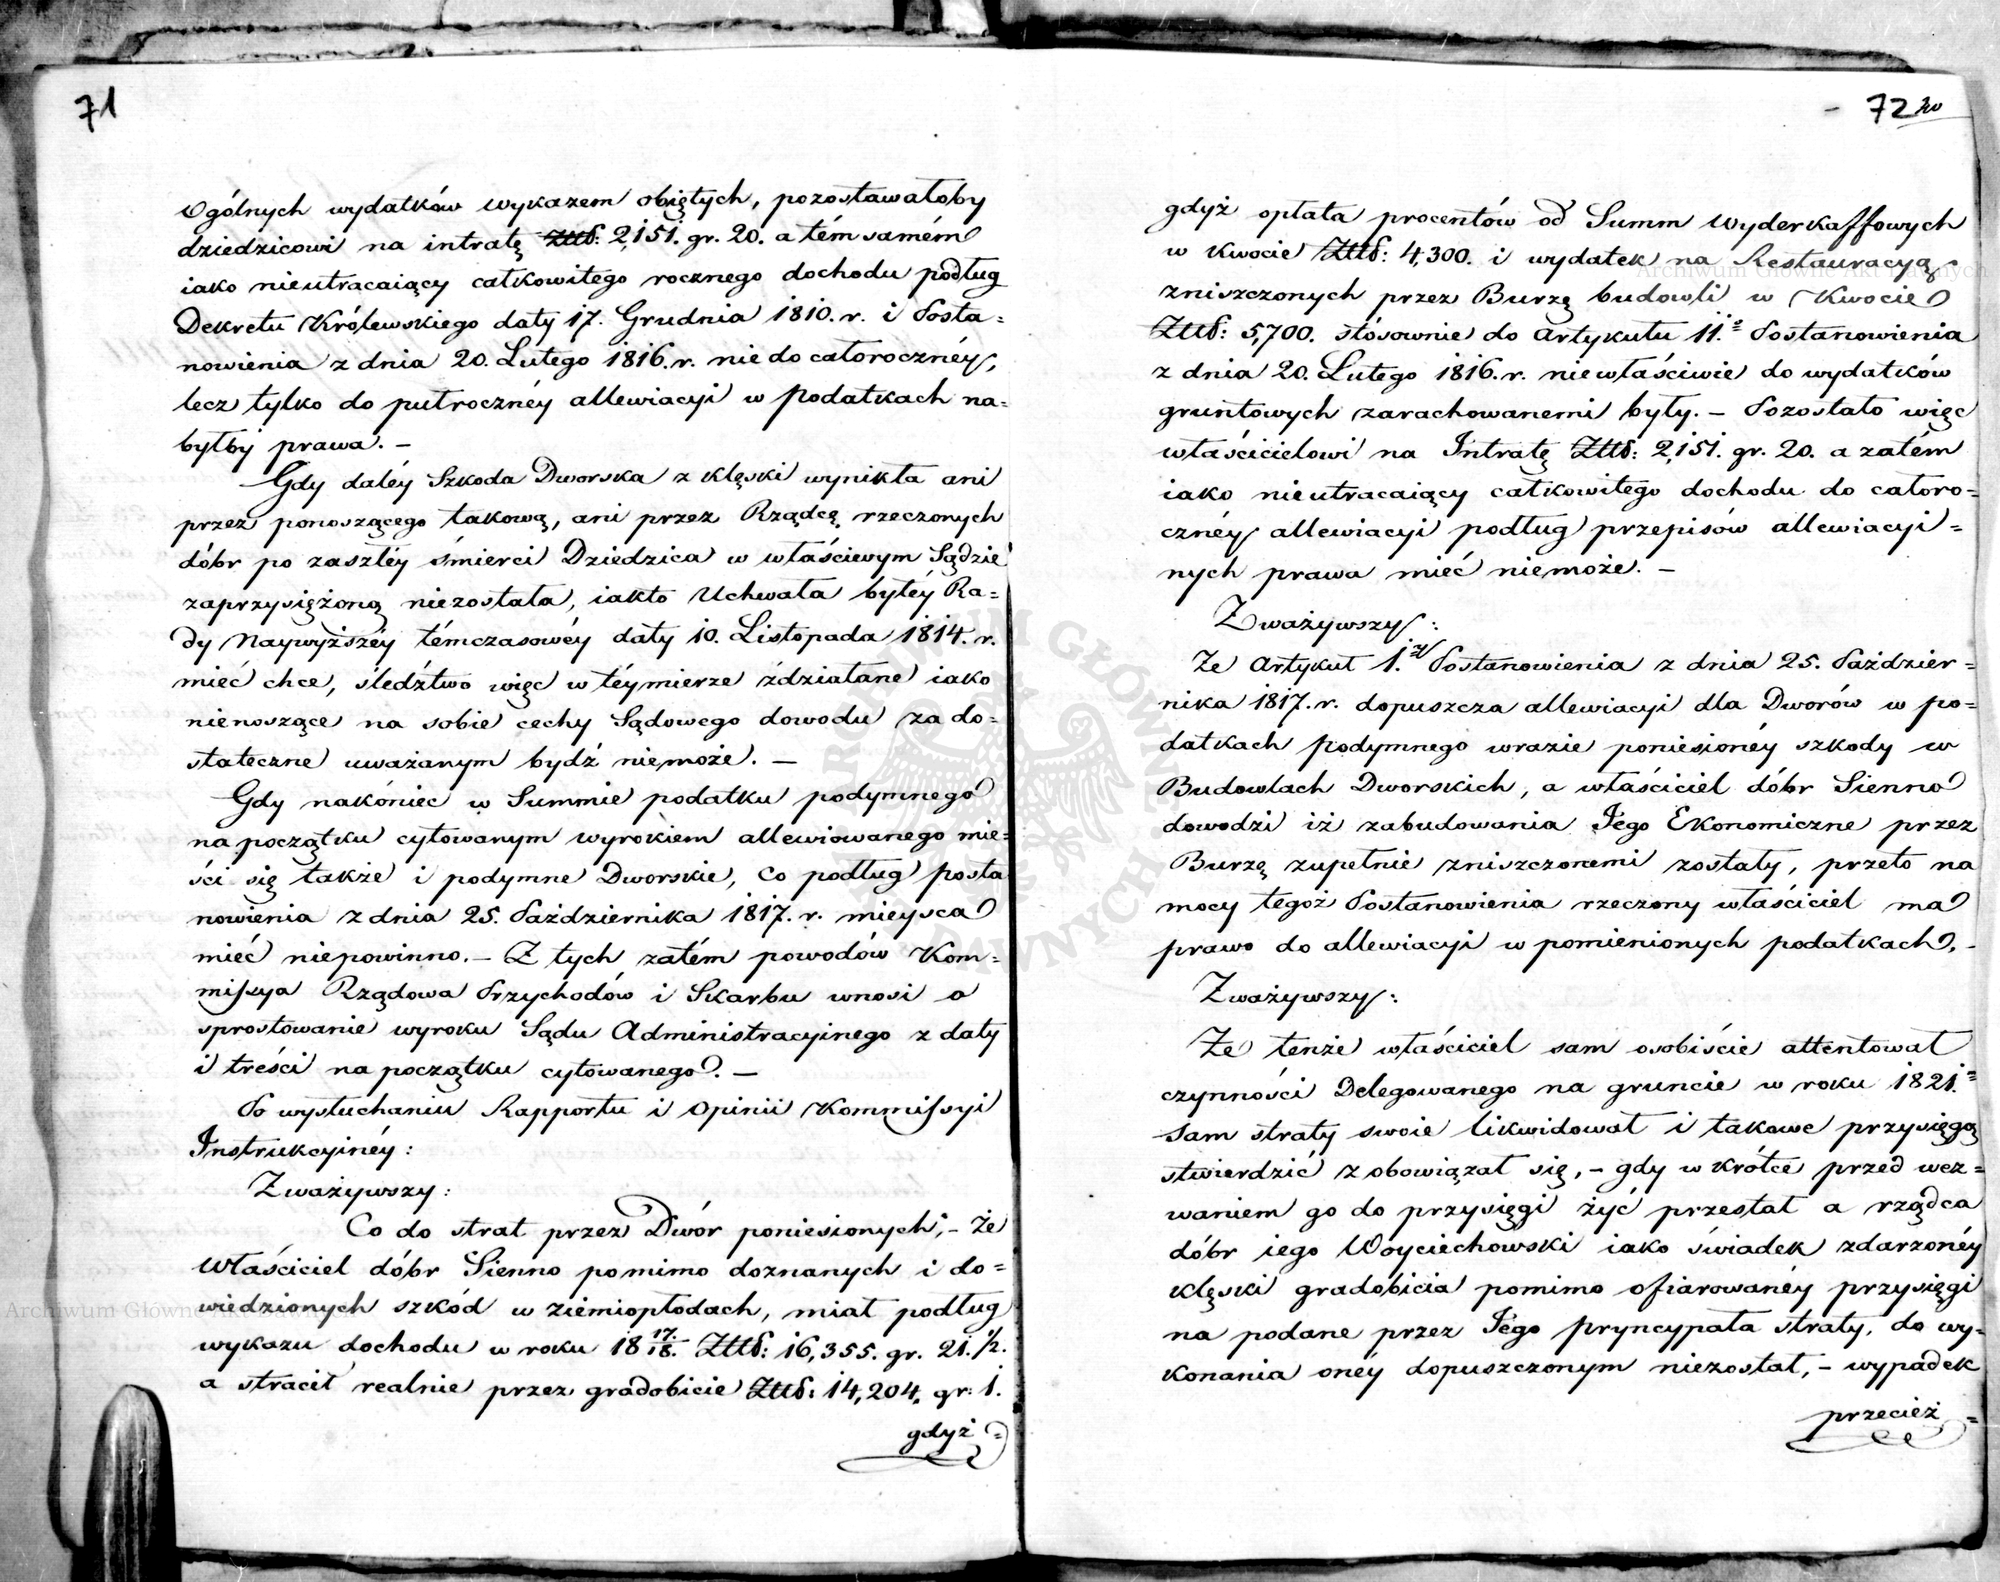 71
Ogólnych wydatków wykazem obiętych, pozostawałoby
dziedzicowi na intratę Złtt: 2,151. gr. 20. a tém samém
iako nieutracaiący całkowitego rocznego dochodu podług
Dekretu Królewskiego daty 17. Grudnia 1810. r. i Posta=
nowienia z dnia 20. Lutego 1816. r. nie do całorocznéy,
lecz tylko do półrocznéy allewiacyi w podatkach na=
byłby prawa. –
Gdy daléy Szkoda Dworska z klęski wynikła ani
przez ponoszącego takową, ani przez Rządcę rzeczonych
dóbr po zaszłéy śmierci Dziedzica w właściwym Sądzie
zaprzysiężoną niezostała, iakto Uchwała byłéy Ra=
dy Naywyższéy témczasowéy daty 10. Listopada 1814. r.
mieć chce, śledztwo więc w téymierze zdziałane iako
nienoszące na sobie cechy Sądowego dowodu za do=
stateczne uważanym bydź niemoże. –
Gdy nakoniec w Summie podatku podymnego
na początku cytowanym wyrokiem allewiowanego mie=
ści się także i podymne Dworskie, co podług posta
nowienia z dnia 25. Października 1817. r. mieysca
mieć niepowinno. – Z tych zatém powodów Kom=
missya Rządowa Przychodów i Skarbu wnosi o
sprostowanie wyroku Sądu Administracyinego z daty
i treści na początku cytowanego. –
Po wysłuchaniu Rapportu i Opinii Kommissyi
Instrukcyinéy:
Zważywszy:
Co do strat przez Dwór poniesionych, – że
Właściciel dóbr Sienno pomimo doznanych i do=
wiedzionych szkód w ziemiopłodach, miał podług
wykazu dochodu w roku 18 17/18. Złtt: 16,355. gr. 21. 1/2.
a stracił realnie przez gradobicie Złtt: 14,204. gr: 1.
gdyż =
– 72
gdyż opłata procentów od Summ Wyderkaffowych
w kwocie Złtt: 4,300. i wydatek na Restauracyą
zniszczonych przez Burzę budowli w Kwocie
Złtt: 5,700. stósownie do Artykułu 11.º Postanowienia
z dnia 20. Lutego 1816. r. niewłaściwie do wydatków
gruntowych zarachowanemi były. – Pozostało więc
właścicielowi na Intratę Złtt: 2,151. gr. 20. a zatém
iako nieutracaiący całkowitego dochodu do całoro=
cznéy allewiacyi podług przepisów allewiacyi=
nych prawa mieć niemoże. –
Zważywszy:
Ze Artykuł 1.szy Postanowienia z dnia 25. Paździer=
nika 1817. r. dopuszcza allewiacyi dla Dworów w po=
datkach podymnego wrazie poniesionéy szkody w
Budowlach Dworskich, a właściciel dóbr Sienno
dowodzi iż zabudowania Jego Ekonomiczne przez
Burzę zupełnie zniszczonemi zostały, przeto na
mocy tegoż Postanowienia rzeczony właściciel ma
prawo do allewiacyi w pomienionych podatkach. –
Zważywszy:
Ze tenże właściciel sam osobiście attentował
czynności Delegowanego na gruncie w roku 1821.
Sam straty swoie likwidował i takowe przysięgą
stwierdzić zobowiązał się, – gdy w krótce przed wez=
waniem go do przysięgi żyć przestał a rządca
dóbr iego Woyciechowski iako świadek zdarzonéy
klęski gradobicia pomimo ofiarowanéy przysięgi
na podane przez Jego pryncypała straty, do wy=
konania onéy dopuszczonym niezostał, – wypadek
przecież =
Archiwum Główne Akt Dawnych